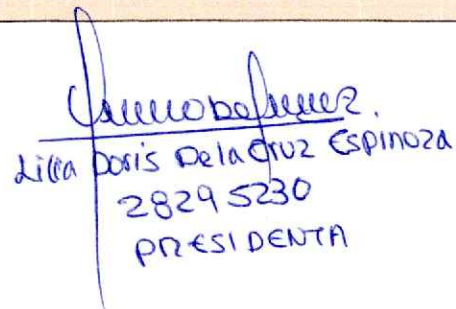 Lilia Doris Dela Cruz Espinoza
28295230
PRESIDENTA